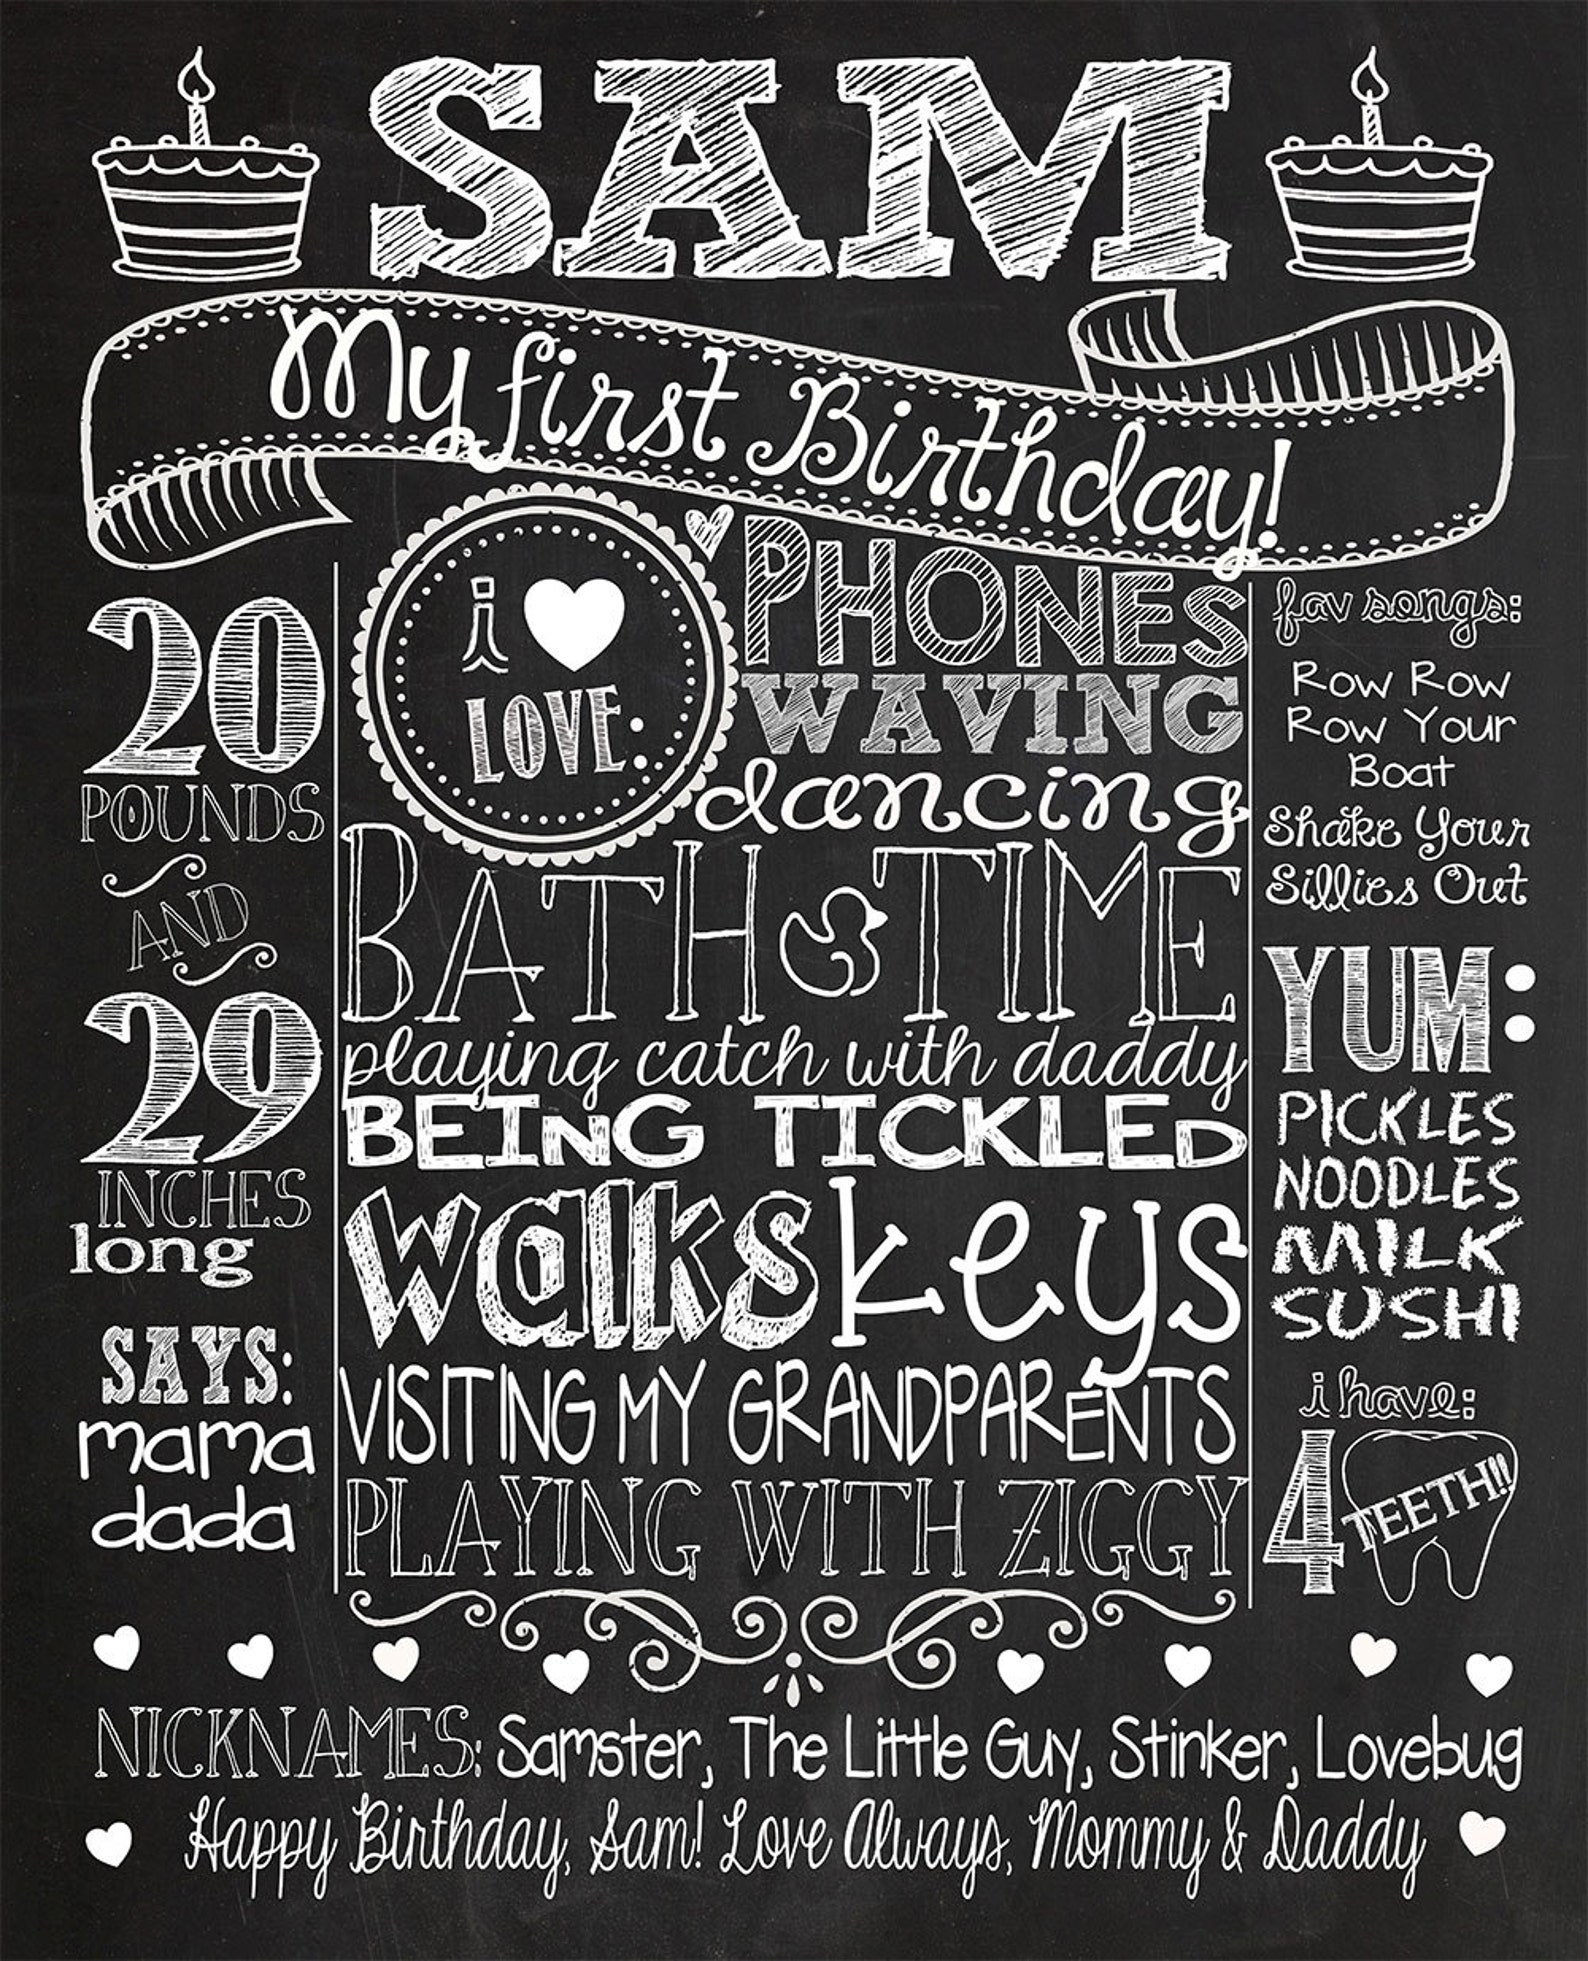 SAM
My first Birthday!
20
POUNDS
AND
29
INCHES
long
SAYS:
mama
dada
i ♥
LOVE:
PHONES
WAVING
dancing
BATH TIME
playing catch with daddy
BEING TICKLED
walks keys
VISITING MY GRANDPARENTS
PLAYING WITH ZIGGY
fav songs:
Row Row
Row Your
Boat
Shake Your
Sillies Out
YUM:
PICKLES
NOODLES
MILK
SUSHI
i have:
4 TEETH!!
NICKNAMES: Samster, The Little Guy, Stinker, Lovebug
Happy Birthday, Sam! Love Always, Mommy & Daddy